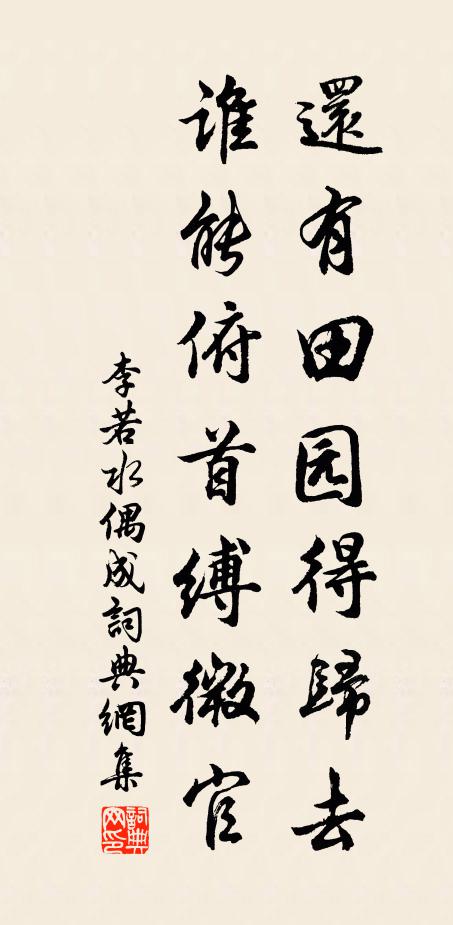 還有田园得歸去
誰能俯首縛微官
李若水偶成詞典網集
詞典
网印